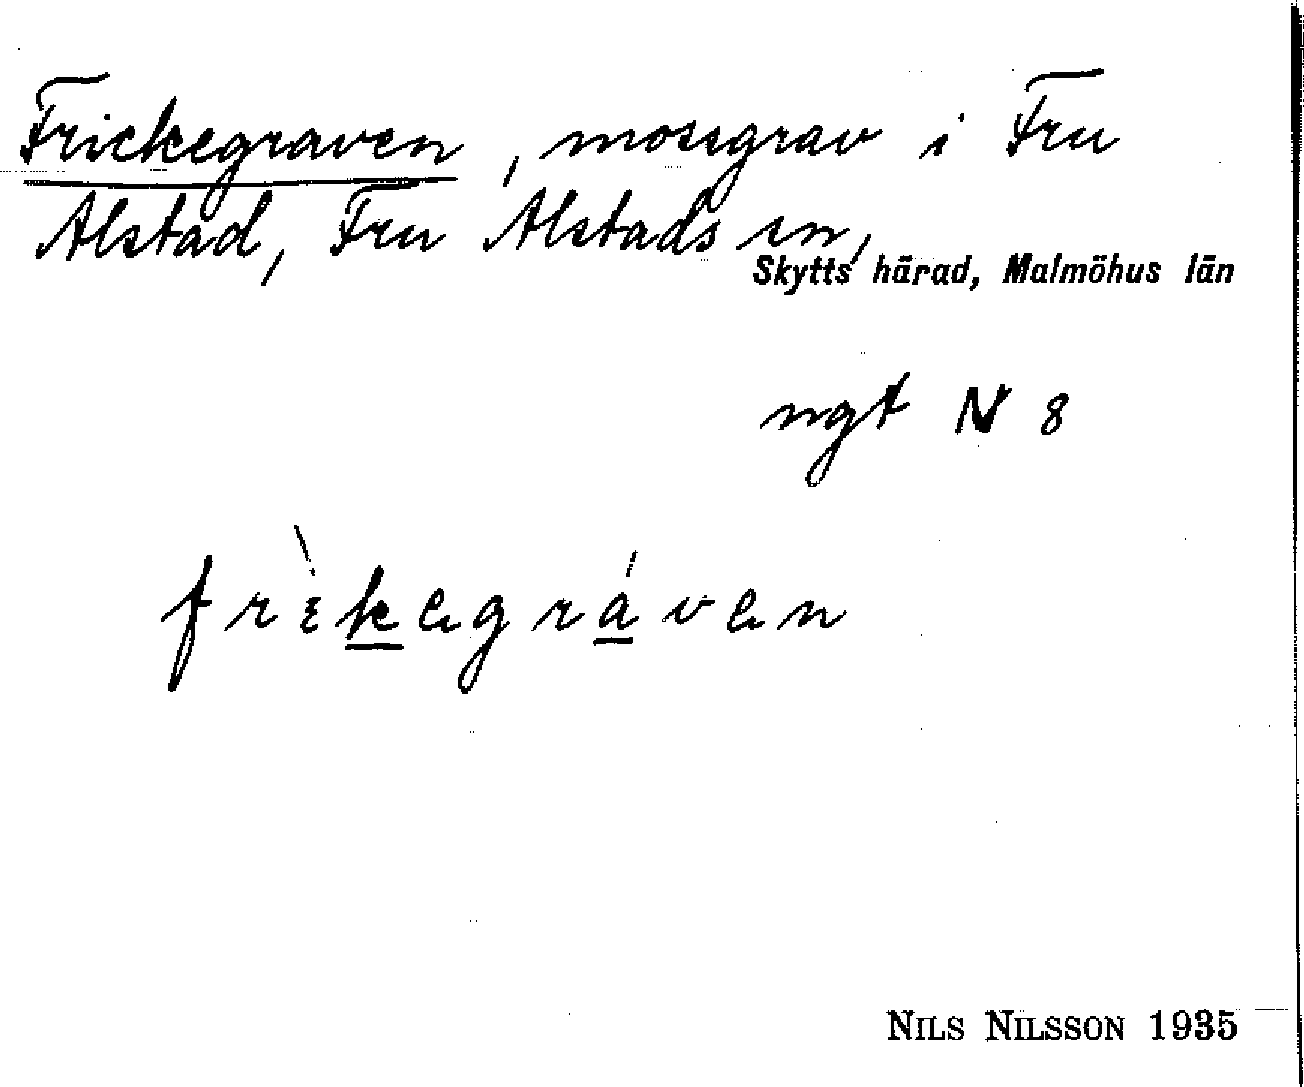 Frickegraven, mossgrav i Fru
Alstad, Fru Alstads sn,
Skytts härad, Malmöhus län
ngt N 8
frìkegráven
NILS NILSSON 1935